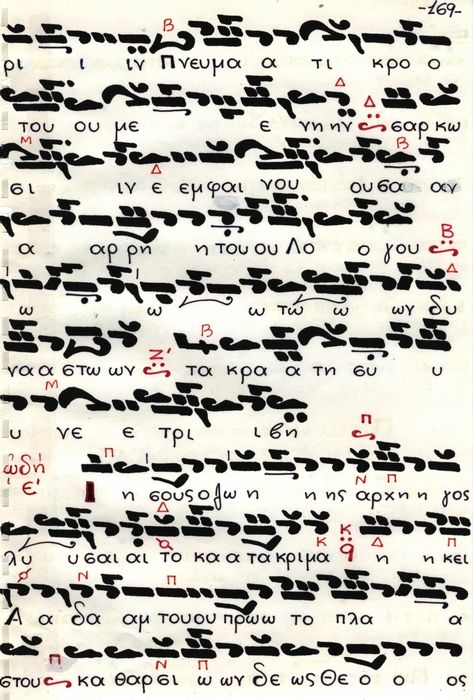 -169-
ρι ι ιν Πνευμα α τι κρο ο
του ου με ε νη ην σαρ κω
σι ιν ε εμφαι νου ου σα αν
α αρ ρη η του ου Λο ο γου
ω ω ω τω ω ων δυ
να α στω ων τα κρα α τη ευ υ
υ νε ε τρι ι βη
ὠδή ε΄ Ι η σους ο ζω η η ης αρχη η γος
λυ υ σαι αι το κα α τα κριμα η η κει
Α α δα αμ του ου πρω ω το πλα α
στου κα θαρσι ω ων δε ως Θε ο ο ος